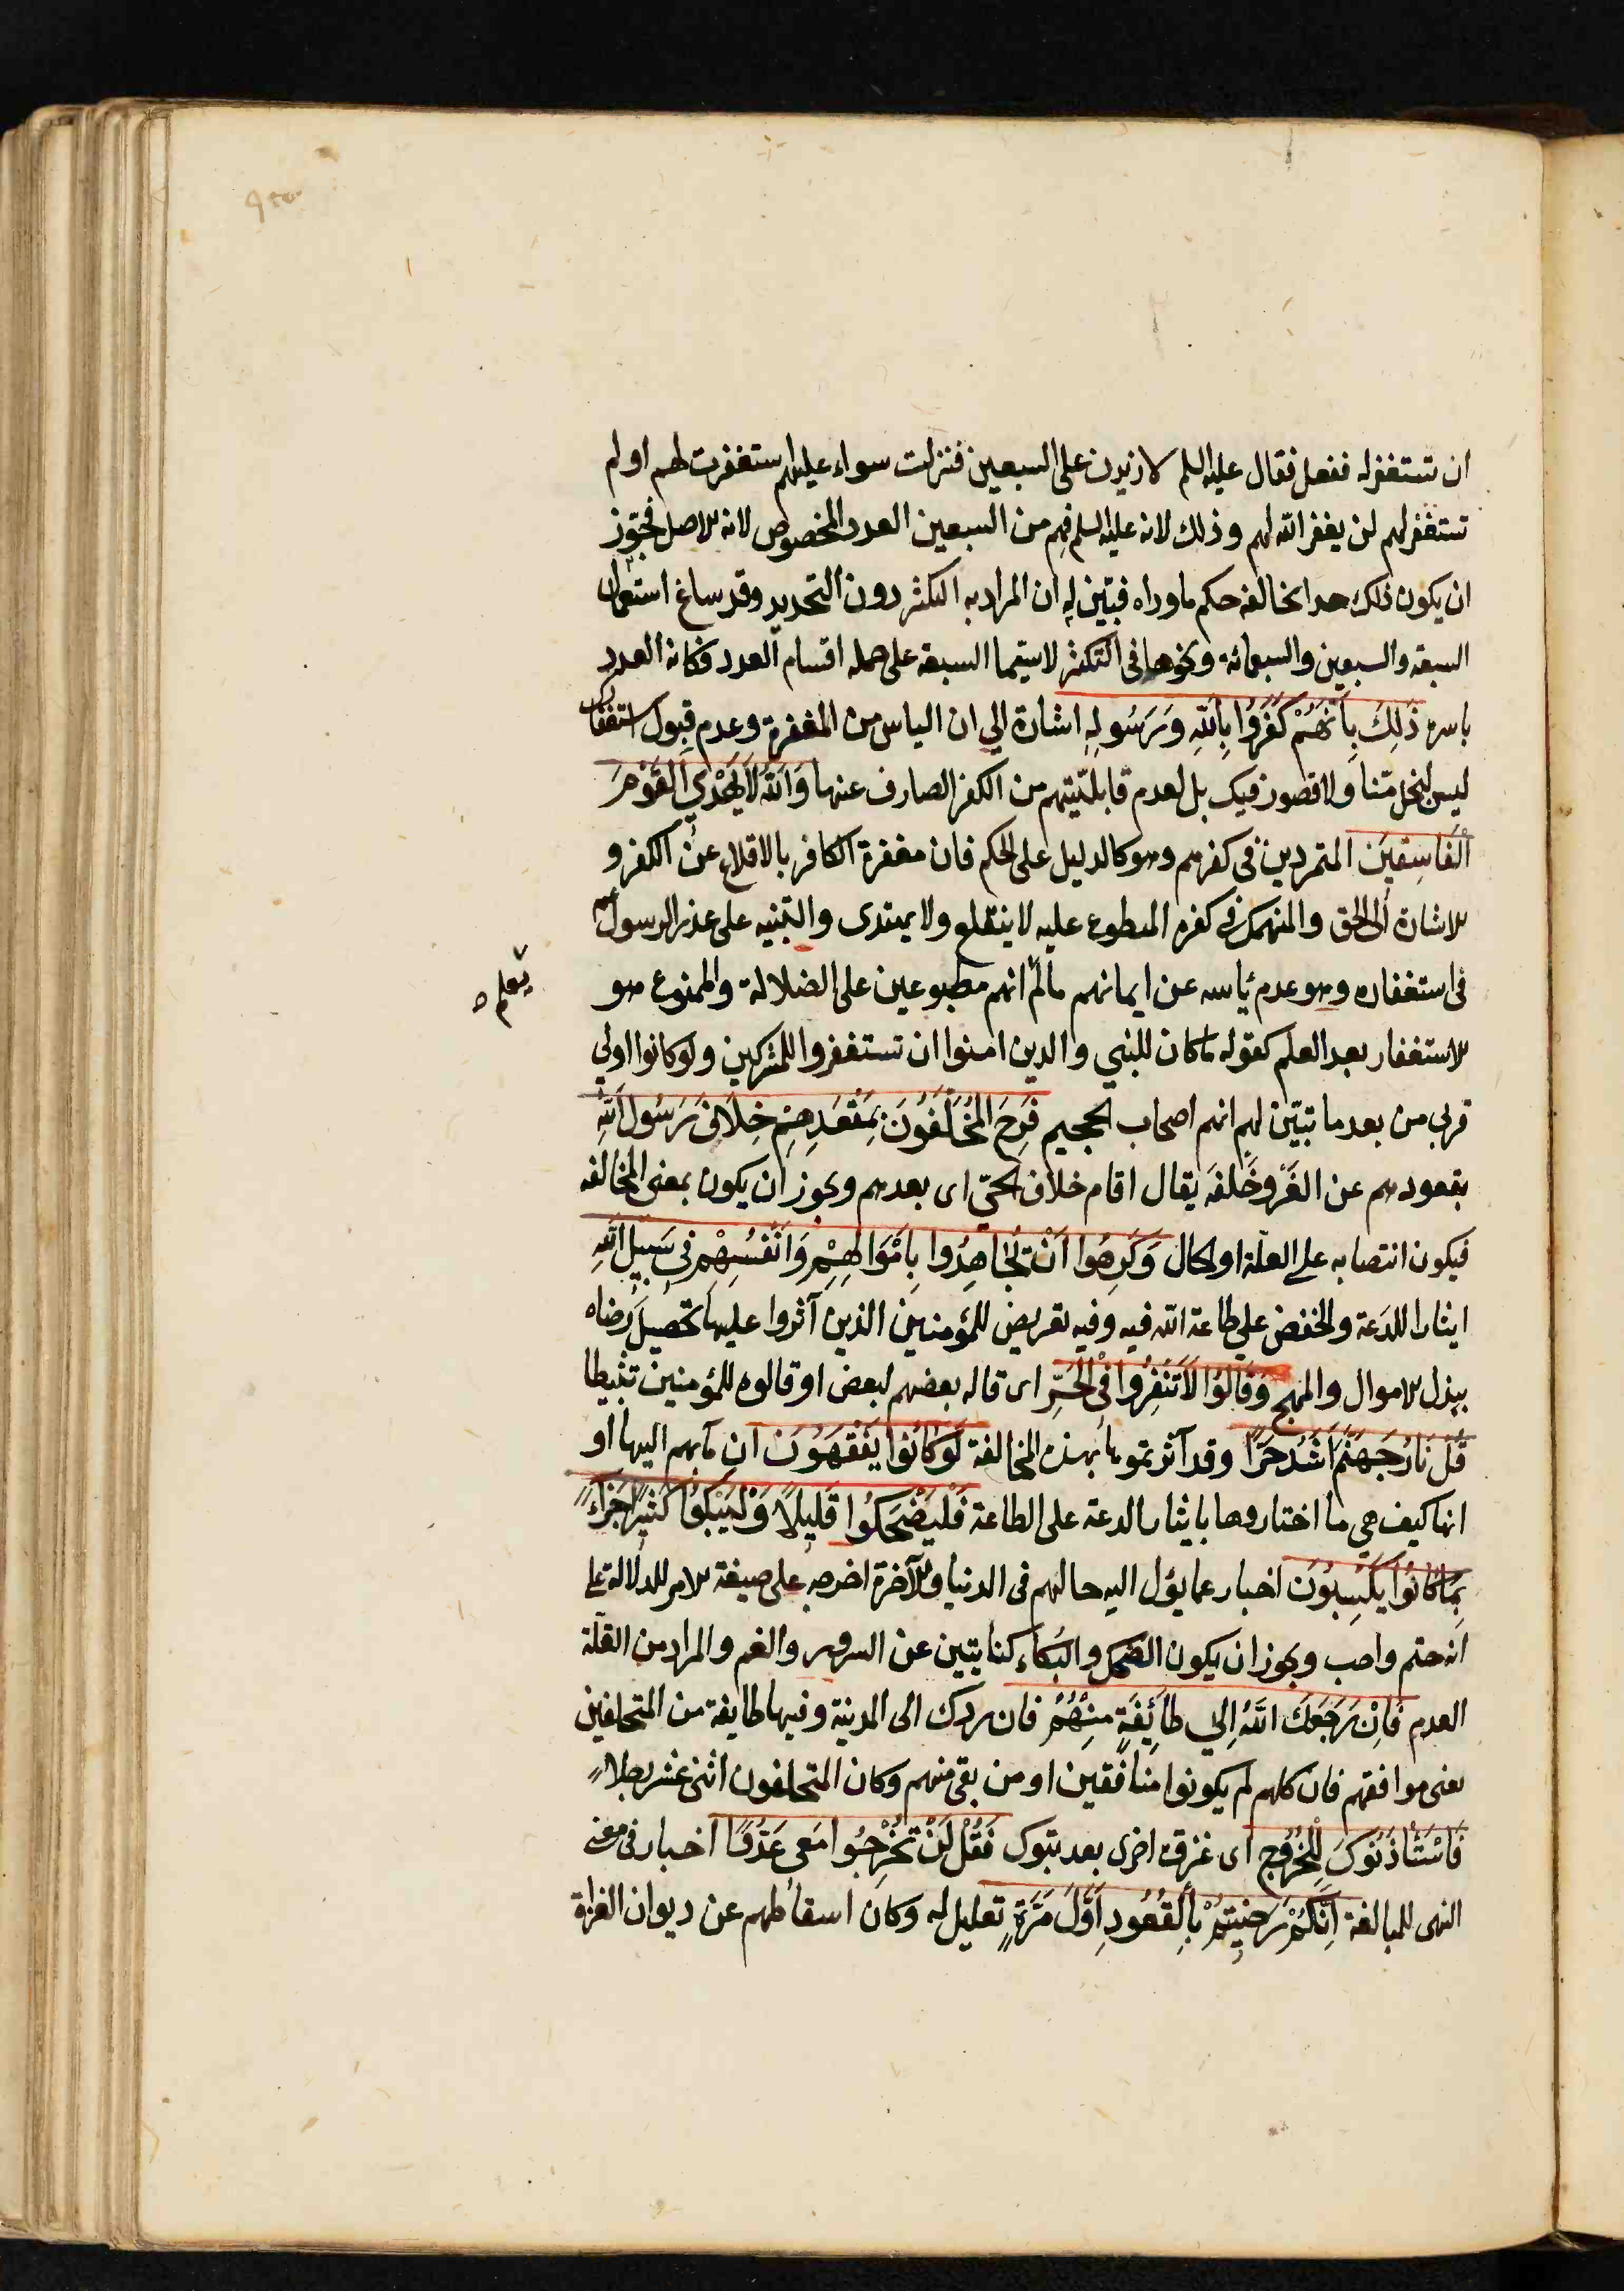 ان تستغفر له ففعل فقال عليه السلم لازيدن على السبعين فنزلت سواء عليهم استغفرت لهم او لم
تستغفر لهم لن يغفر الله لهم وذلك لانه عليه السلم فهم من السبعين العدد المخصوص لانه الاصل فجوز
ان يكون ذلك حدا يخالفه حكم ما وراه فبين له ان المراد به التكثير دون التحديد وقد ساغ استعمال
السبعة والسبعين والسبعمائة ونحوها فى التكثير لاشتمال السبعة على جملة اقسام العدد فكانه العدد
باسره ذَلِكَ بِأَنَّهُمْ كَفَرُوا بِاللَّهِ وَرَسُولِهِ اشارة الي ان الياس من المغفرة وعدم قبول استغفارك
ليس لبخل منا ولا قصور فيك بل لعدم قابليتهم من الكفر الصارف عنها وَاللَّهُ لَا يَهْدِي الْقَوْمَ
الْفَاسِقِينَ المتمردين فى كفرهم وهو كالدليل على الحكم فان مغفرة الكافر بالاقلاع عن الكفر و
الارشاد الى الحق والمنهمك فى كفره المطبوع عليه لا ينقلع ولا يهتدى والتنبيه على عذر الرسول
فى استغفاره وهو عدم يأسه عن ايمانهم مالم انهم مطبوعين على الضلالة والممنوع هو
يعلم
الاستغفار بعد العلم كقوله ما كان للنبي والذين امنوا ان تستغفروا للمشركين ولو كانوا اولي
قربي من بعد ما تبين لهم انهم اصحاب الجحيم فَرِحَ الْمُخَلَّفُونَ بِمَقْعَدِهِمْ خِلَافَ رَسُولِ اللَّهِ
بقعودهم عن الغزو خلفه يقال اقام خلاف الحي اى بعدهم ويجوز ان يكون بمعنى المخالفه
فيكون انتصابه على العلة او الحال وَكَرِهُوا أَنْ يُجَاهِدُوا بِأَمْوَالِهِمْ وَأَنْفُسِهِمْ فِى سَبِيلِ اللَّهِ
ايثارا للدعة والخفض علي طاعة الله فيه وفيه تعريض للمؤمنين الذين آثروا عليها تحصيل رضاه
ببذل الاموال والمهج وَقَالُوا لَا تَنْفِرُوا فِى الْحَرِّ اى قاله بعضهم لبعض او قالوه للمؤمنين تثبيطا
قُلْ نَارُ جَهَنَّمَ أَشَدُّ حَرًّا وقد آثرتموها بهذه المخالفة لَوْ كَانُوا يَفْقَهُونَ ان مآبهم اليها او
انها كيف هي ما اختاروها بايثار الدعة على الطاعة فَلْيَضْحَكُوا قَلِيلًا وَلْيَبْكُوا كَثِيرًا جَزَاءً
بِمَا كَانُوا يَكْسِبُونَ اخبار عما يؤل اليه حالهم فى الدنيا والآخرة اخرجه على صيغة الامر للدلالة على
انه حتم واجب ويجوز ان يكون الضحك والبكاء كنايتين عن السرور والغم والمراد من القلة
العدم فَإِنْ رَجَعَكَ اللَّهُ إِلي طَائِفَةٍ مِنْهُمْ فان ردك الى المدينة وفيها طايفة من المتخلفين
يعنى موافقهم فان كلهم لم يكونوا منافقين او من بقى منهم وكان المتخلفون اثنى عشر رجلا
فَاسْتَأْذَنُوكَ لِلْخُرُوجِ اى غزوة اخرى بعد تبوك فَقُلْ لَنْ تَخْرُجُوا مَعِى عَدُوًّا اخبار فى معنى
النهى للمبالغة إِنَّكُمْ رَضِيتُمْ بِالْقُعُودِ أَوَّلَ مَرَّةٍ تعليل له وكان اسقاطهم عن ديوان الغزاة